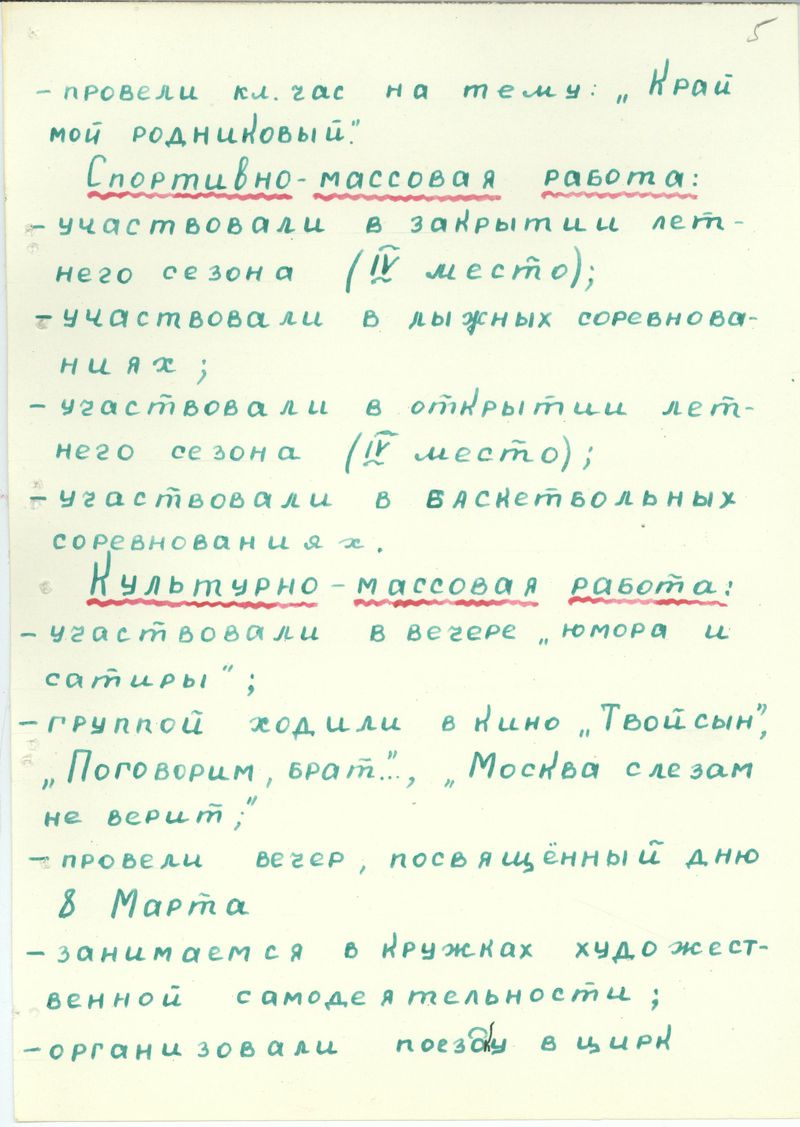 5
- провели кл. час на тему: „Край
мой родниковый".
Спортивно-массовая работа:
- участвовали в закрытии лет-
него сезона (IV место);
- участвовали в лыжных соревнова-
ниях;
- участвовали в открытии лет-
него сезона (IV место);
- участвовали в баскетбольных
соревнованиях.
Культурно-массовая работа:
- участвовали в вечере „юмора и
сатиры";
- группой ходили в кино „Твой сын",
„Поговорим, брат...", „Москва слезам
не верит;"
- провели вечер, посвящённый дню
8 Марта
- занимается в кружках художест-
венной самодеятельности;
- организовали поездку в цирк